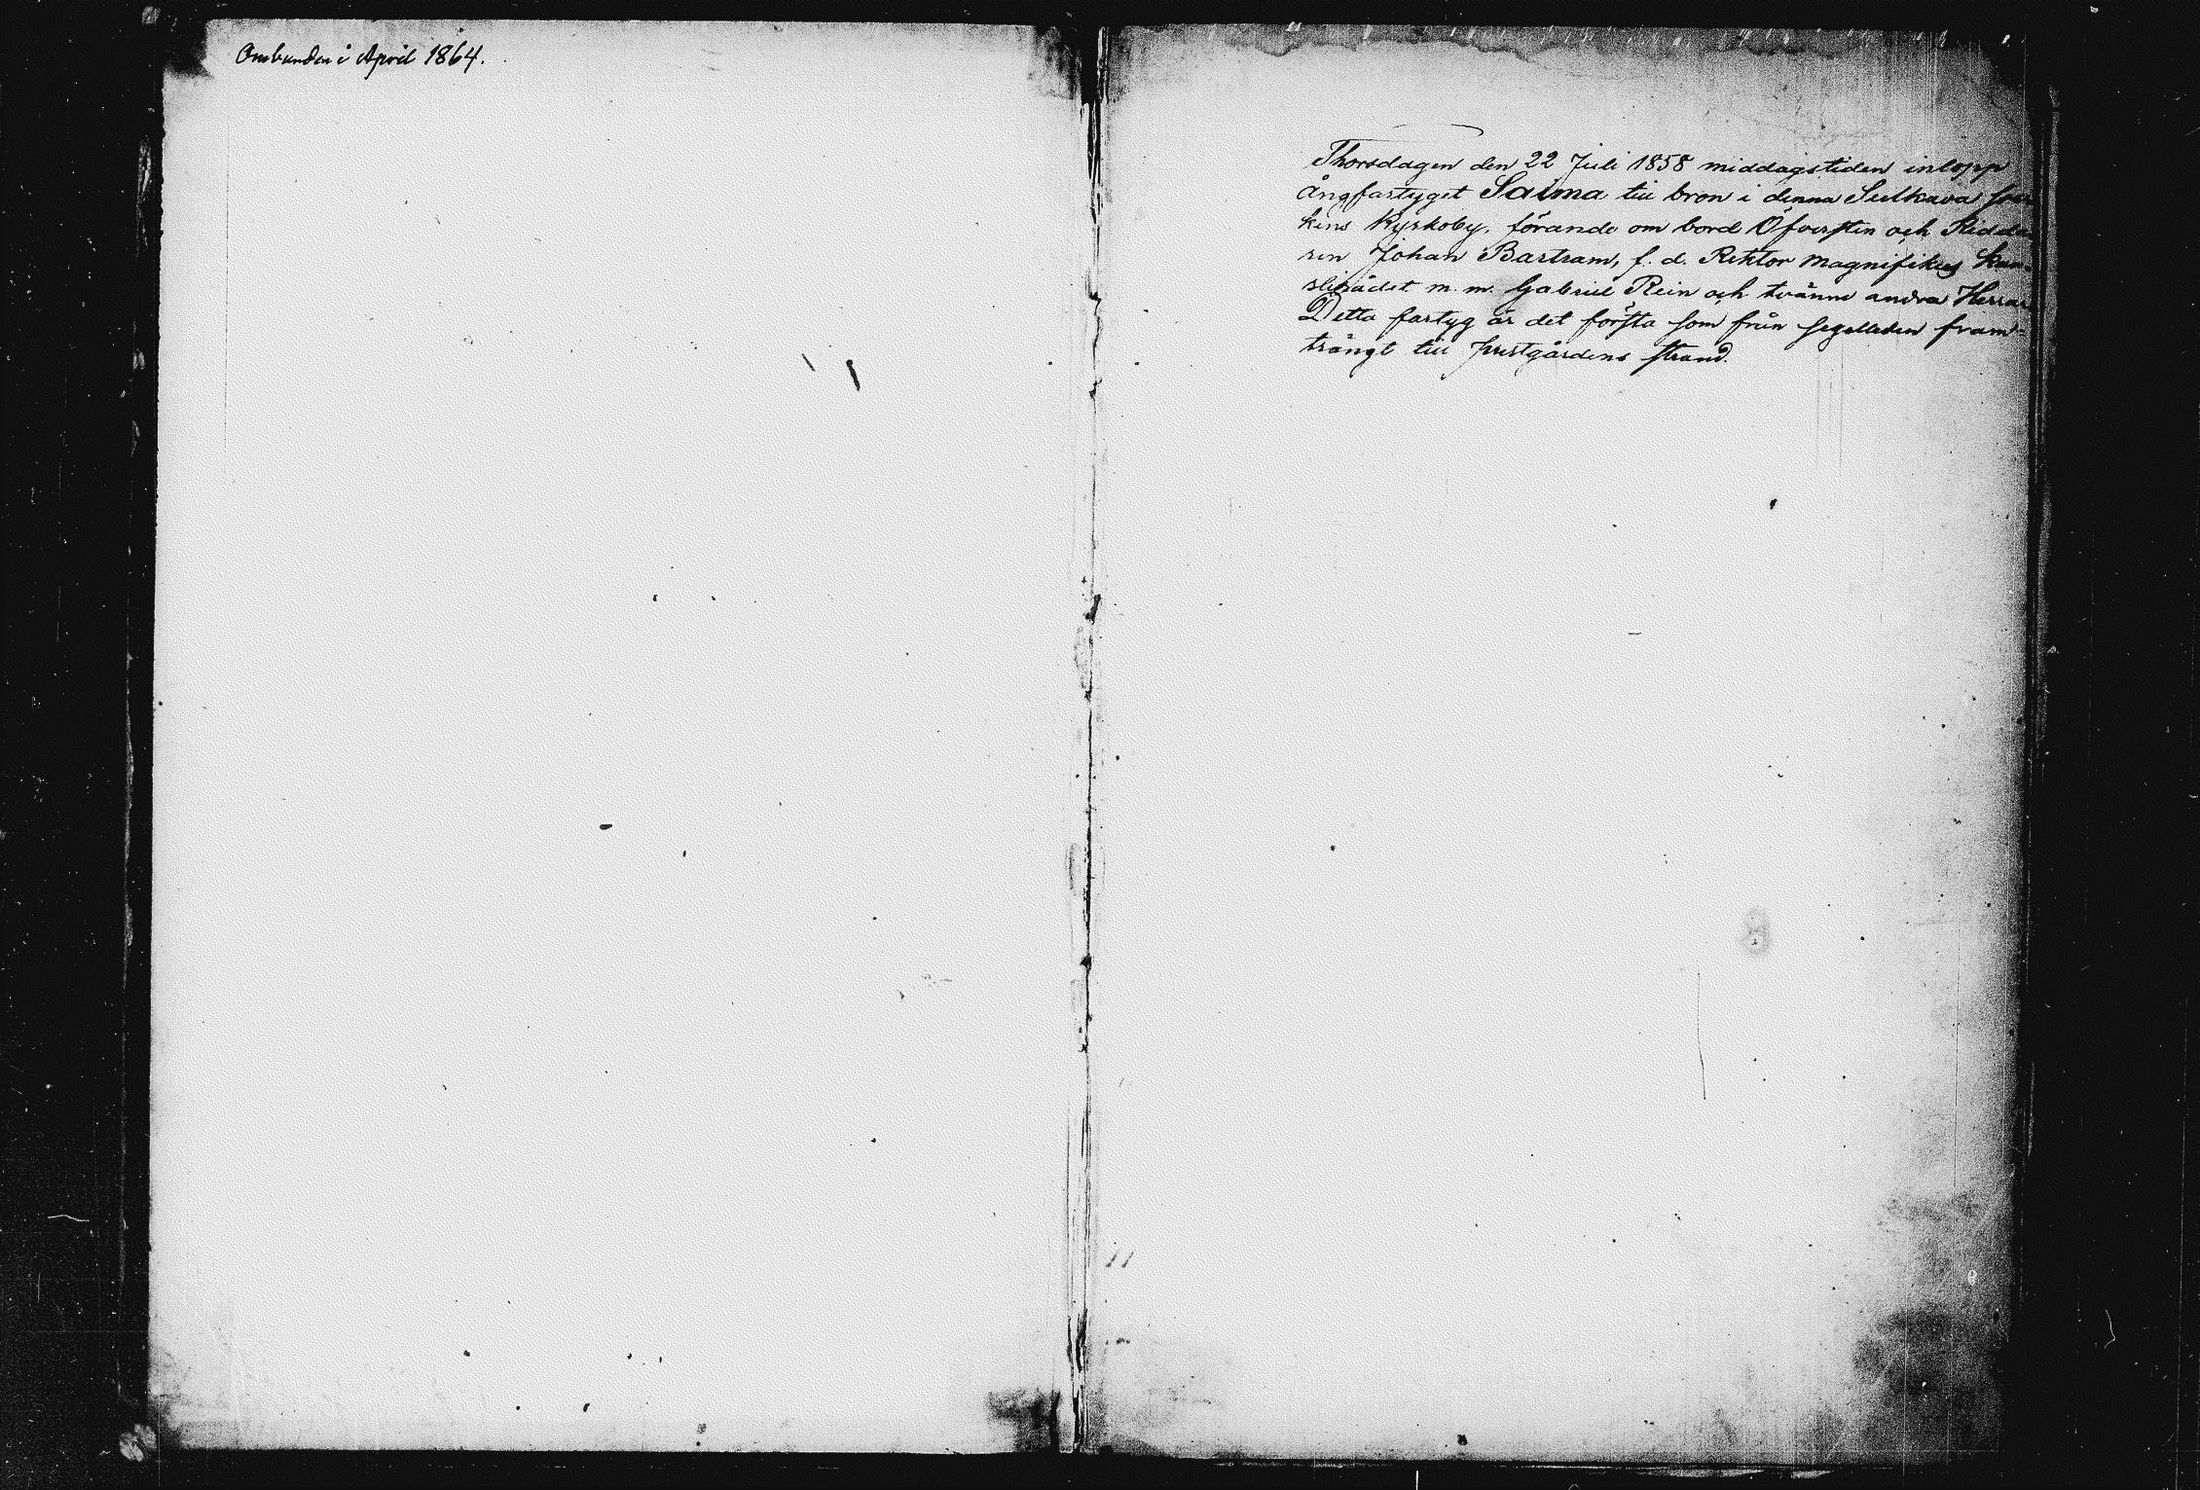 Ombunden i April 1864.
Thorsdagen den 22 Juli 1858 middagstiden inlopp
ångfartyget Saima till bron i denna Sulkava soc-
kens Kyrkoby, förande om bord Öfversten och Ridda-
ren Johan Bartram, f. d. Rektor Magnifikus Kan-
slirådet m. m. Gabriel Rein och tvänne andra Herrar
Detta fartyg är det första som från segelleden fram-
trängt till prestgårdens strand.